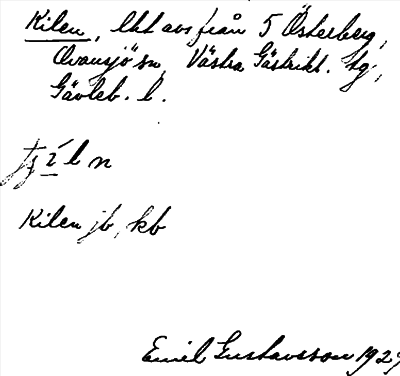 Kilen, lht avs från 5 Österberg,
Ovansjö sn, Västra Gästrikl. tg,
Gävleb. l.
Kilen jb, kb
Emil Gustavsson 1929